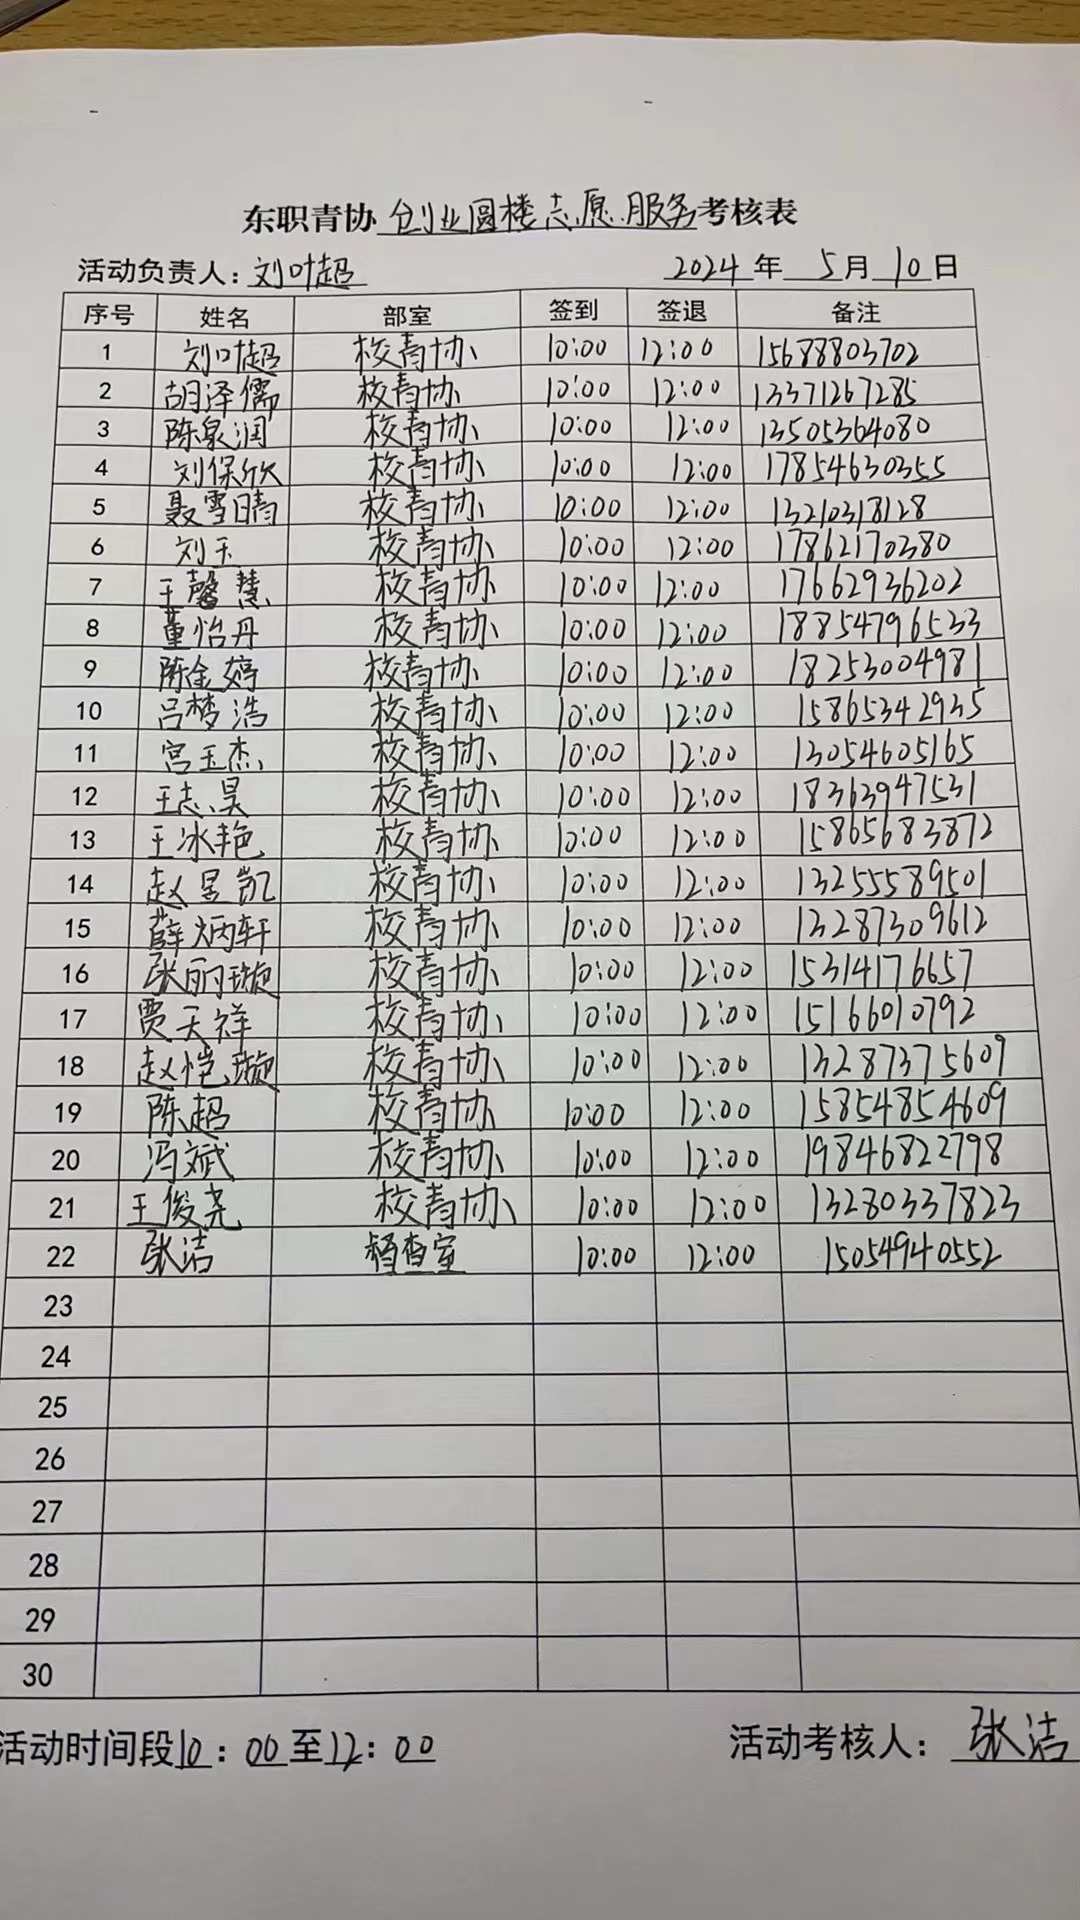 东职青协 创业圆楼志愿服务考核表
活动负责人：刘叶超 2024年 5月 10日
序号 姓名 部室 签到 签退 备注
1 刘叶超 校青协 10:00 12:00 15688803702
2 胡泽儒 校青协 10:00 12:00 13371267285
3 陈泉润 校青协 10:00 12:00 13505364080
4 刘保欣 校青协 10:00 12:00 17854630355
5 聂雪晴 校青协 10:00 12:00 13210318128
6 刘玉 校青协 10:00 12:00 17862170380
7 王馨慧 校青协 10:00 12:00 17662936202
8 董怡丹 校青协 10:00 12:00 18854796533
9 陈金婷 校青协 10:00 12:00 18253004981
10 吕梦浩 校青协 10:00 12:00 15865342935
11 宫玉杰 校青协 10:00 12:00 13054605165
12 王志昊 校青协 10:00 12:00 18363947531
13 王冰艳 校青协 10:00 12:00 15865683872
14 赵昱凯 校青协 10:00 12:00 13255589501
15 薛炳轩 校青协 10:00 12:00 13287309612
16 张丽璇 校青协 10:00 12:00 15314176657
17 贾天祥 校青协 10:00 12:00 15166010792
18 赵恺璇 校青协 10:00 12:00 13287375609
19 陈超 校青协 10:00 12:00 15854854609
20 冯斌 校青协 10:00 12:00 19846822798
21 王俊尧 校青协 10:00 12:00 13280337823
22 张洁 督查室 10:00 12:00 15054940552
23
24
25
26
27
28
29
30
活动时间段10：00至12：00 活动考核人：张洁